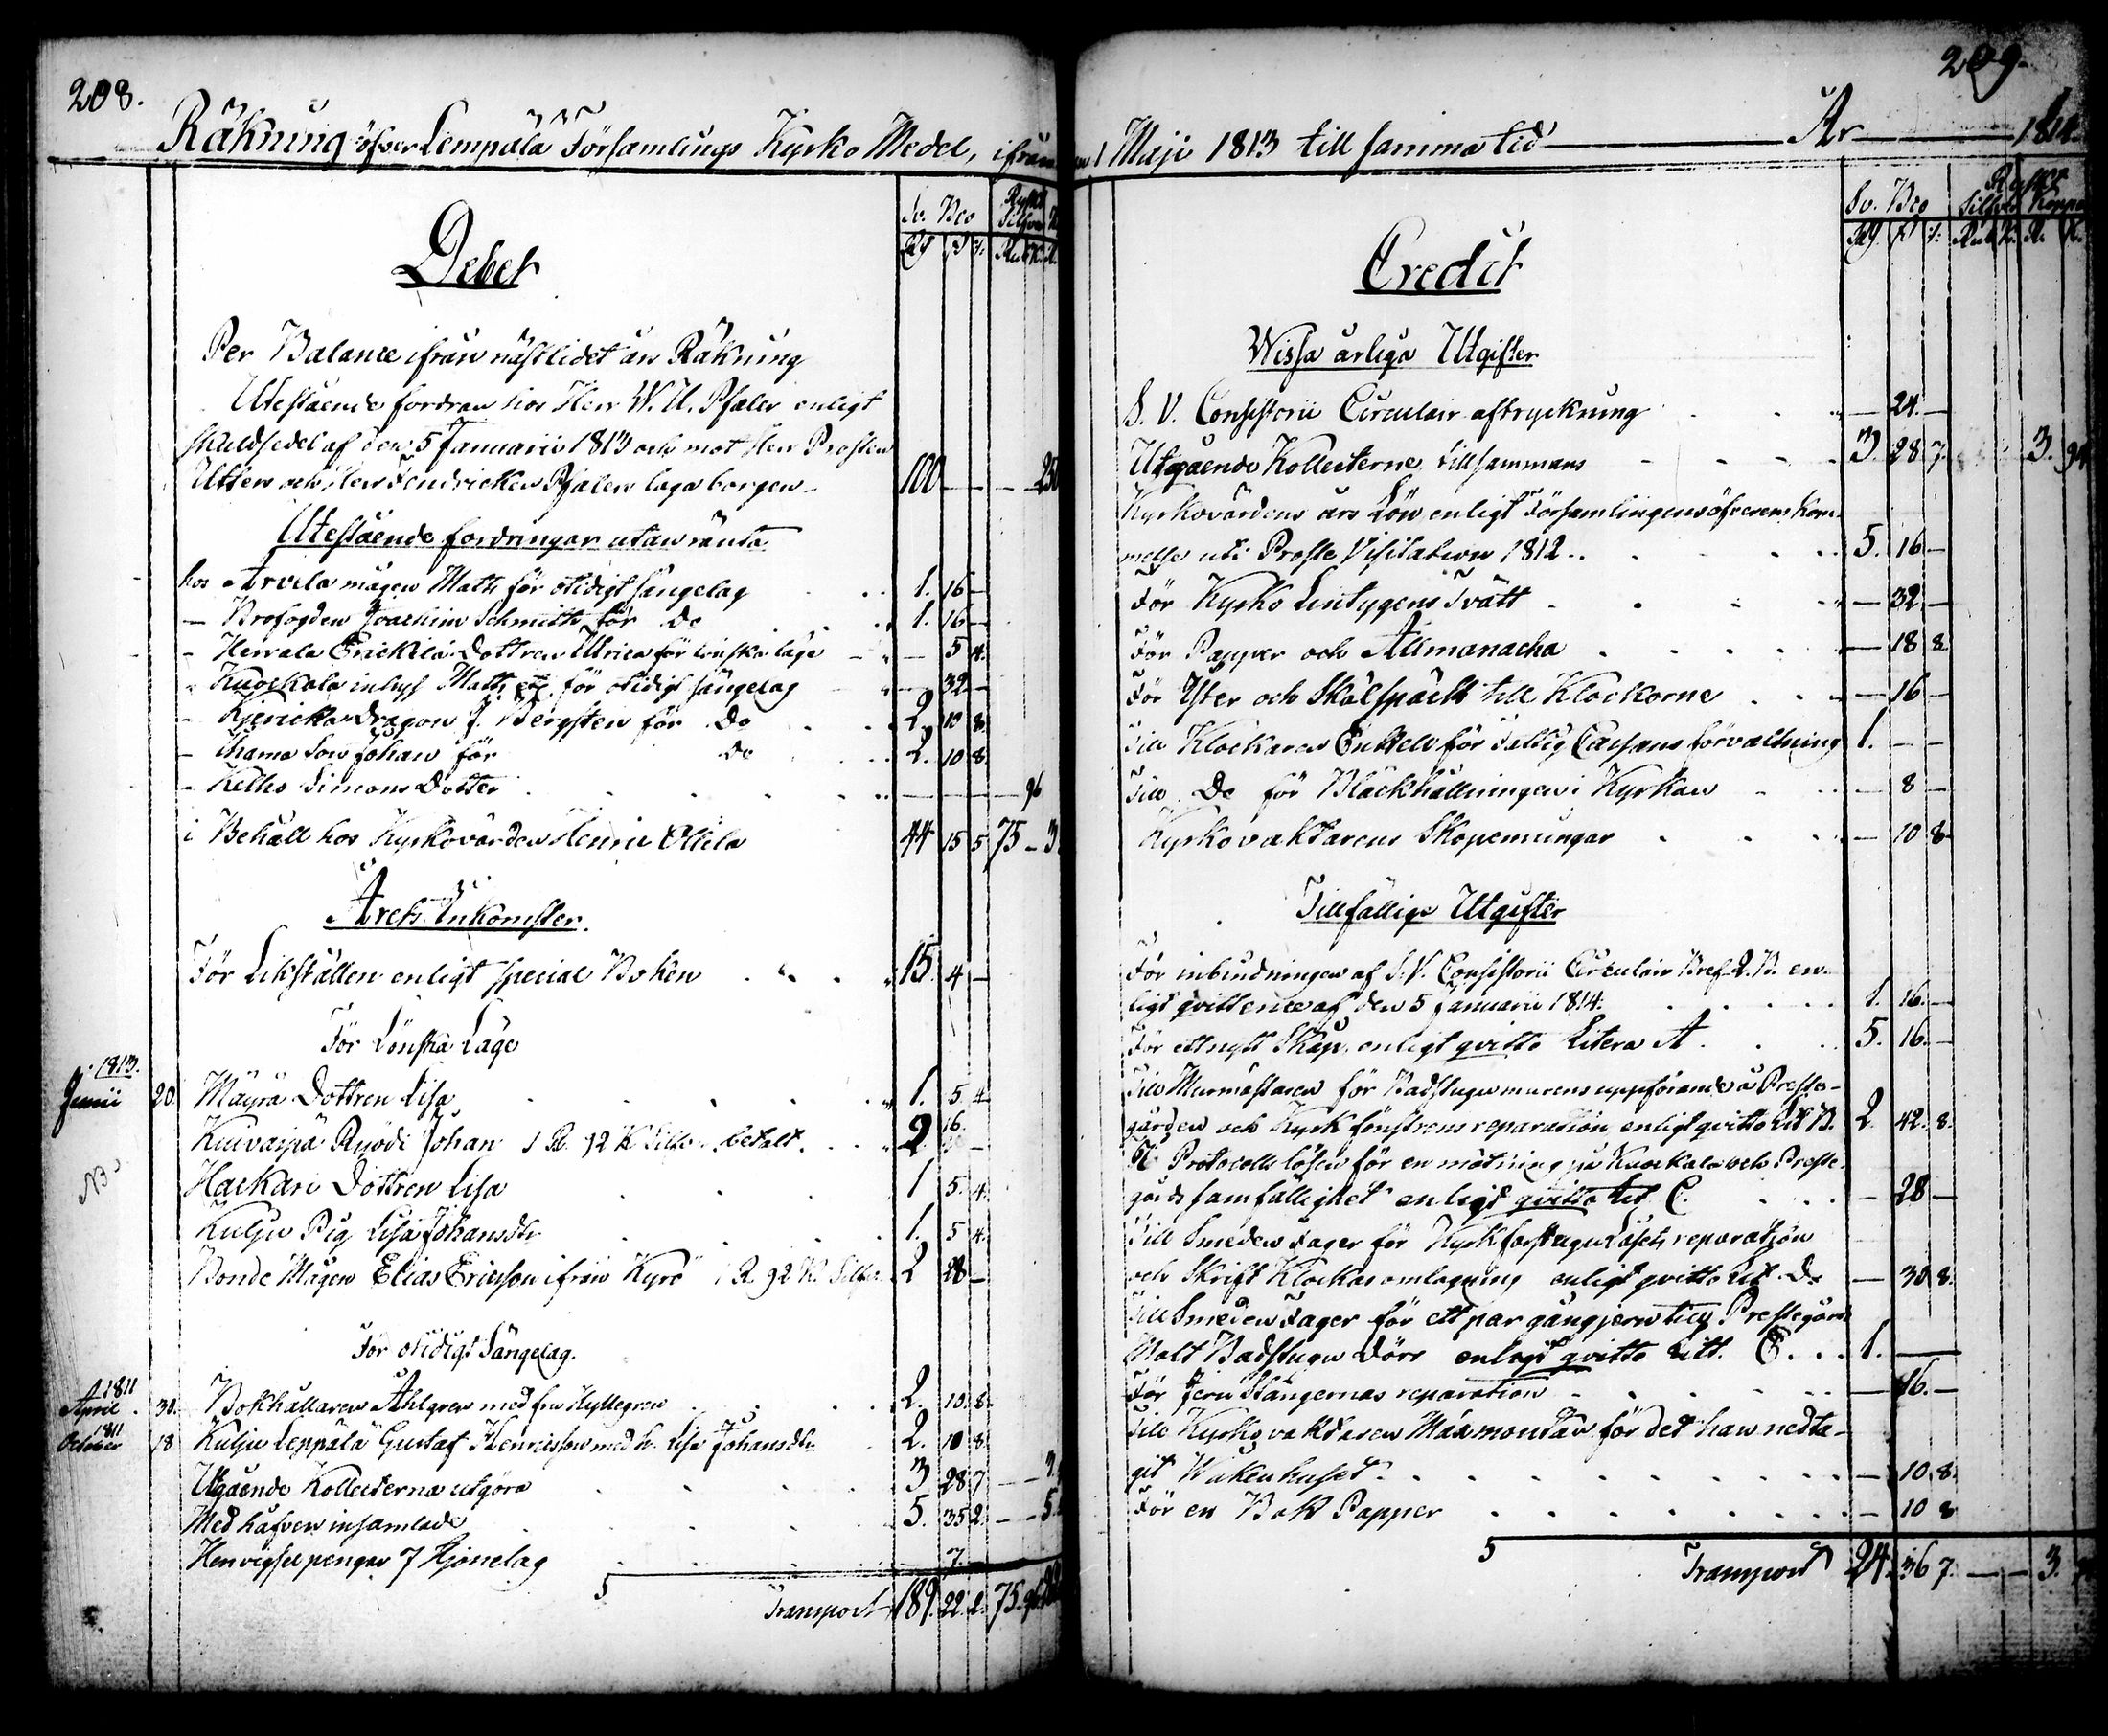 208.
Räkning öfver Lempälä Församlings Kyrko Medel, ifrån
Sv. Bco Ryskt Silfver
Debet
Rd s r. Rub. K.
Per Balance ifrån nästlidet års Räkning
Utestående fordran hos Herr W. U. Pfaler enligt
skuldsedel af den 5 Januarii 1813 och mot Herr Prosten
Utters och Herr Fendricken Pfalers laga borgen 100 — — — 250
Utestående fordringar utan ränta
hos Arvela mågen Matts för otidigt sängelag 1. 16 —
— Brofogden Joachim Schmitt för Do 1. 16 —
— Herrala Erickilä Dottren Ulrica för lönska läge — 5 4.
— Kuockala inhys Matts för otidigt sängelag — 32 —
— dragon J. Bergsten för Do 2. 10 8.
— son Johan för Do 2. 10 8.
— Kelho Simons Dotter — — — — 96
i Behåll hos Kyrkovärden Henric Ollila 44 15 5 75 — 3
Årets Inkomster.
För Likställen enligt special Boken 15. 4 —
För Lönska Läge
1813.
Junii 20. Mäyrä Dottren Lisa 1. 5 4
Kuivaspä Ryödi Johan 1 R. 92 K. Silfv. betalt. 2 16. —
NB Hackari Dottren Lisa 1 5. 4.
Kulju Pig. Lisa Johansdr 1. 5 4.
Bonde Mågen Elias Ericsson ifrån Kyrö 1 R. 92 K. Silfv. 2 28 —
För otidigt Sängelag.
1811
April 30. Bokhållaren Ahlgren med fru Hyllegren 2. 10. 8.
1811
October 18 Kulju Leppälä Gustaf Henricsson med h. Lisa Johansdr. 2. 10 8.
Utgående Kollecterna utgöra 3 28 7 — — 3.
Med håfven insamlade 5. 35 2. — — 5.
Hemvigsel penger 7 Hjonelag — 7. —
5 Transport 189. 22. 2. 75. 96
209.
1 Maji 1813 till samma tid — År — 1814.
Sv. Bco Ryskt Silfver Koppar
Credit
Rd. s r. Rub. K. R. K.
Wissa årliga Utgifter
S. V. Consistorii Circulair aftryckning — 24. —
Utgående Kollecterne tillsammans 3 28 7. 3. 94
Kyrkovärdens års Lön enligt Församlingens öfverenskom-
melse uti Proste Visitation 1812. 5. 16 —
För Kyrko Lintygens Tvätt — 32. —
För Papper och Allmanacha — 18 8.
För Ister och Skälspäck till Klockorne — 16 —
Till Klockaren för Fattig Cassans förvaltning 1. — —
Till Do för Bläckhållningen i Kyrkan — 8 —
Kyrkovaktarens Skopenningar — 10 8
Tillfällige Utgifter
För inbindningen af S. V. Consistorii Circulair Bref 2. B. en-
ligt qvittence af den 5 Januarii 1814. 1. 16. —
För ett nytt Skåp, enligt qvitto Litera A 5. 16. —
Till Murmästaren för Badstugu murens uppförande å Preste-
gården och Kyrk fönstrens reparation enligt qvitto Lit B. 2. 42. 8.
Protocolls lösen för en mätning på Kuockala och Preste-
gårds samfällighet enligt qvitto Lit C. — 28 —
Till Smeden Fager för Kyrkforstugu Låsets reparation
och Skrift Klockas omlagning enligt qvitto Lit. D. — 30 8.
Till Smeden Fager för ett par gångjern till Prestegårds
Malt Badstugu Dörr enligt qvitto Litt. E. 1. —
För Jern Stängernas reparation — 16. —
Till Kyrkovaktaren Mårmontan för det han nedta-
git Wakenhuset — 10 8.
För en Bok Papper — 10 8
5 Transport 24. 36 7. — — 3.